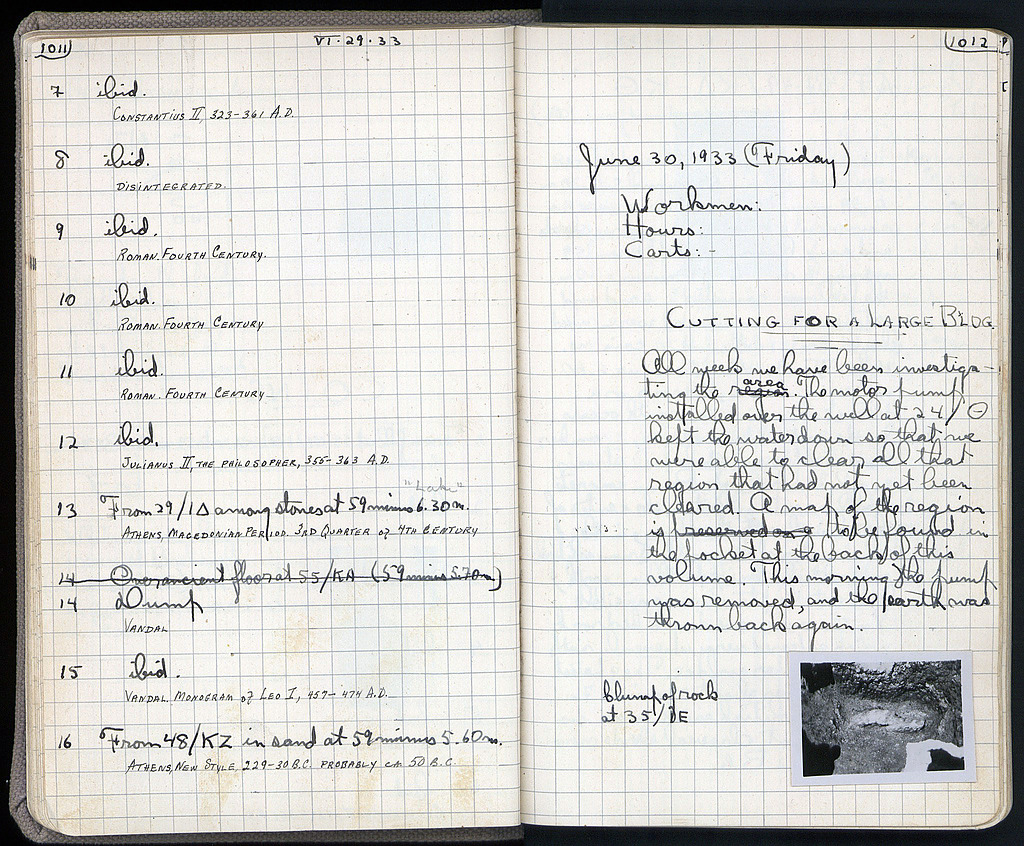 1011
VI·29·33
7 ibid.
Constantius II, 323-361 A.D.
8 ibid.
Disintegrated.
9 ibid.
Roman. Fourth Century.
10 ibid.
Roman. Fourth Century
11 ibid.
Roman. Fourth Century
12 ibid.
Julianus II, the philosopher, 355-363 A.D.
"Late"
13 From 29/ΙΔ among stones at 59 minus 6.30m.
Athens, Macedonian Period. 3rd Quarter of 4th Century
14 Over ancient floor at 55/ΚΑ (59 minus 5.70m)
14 Dump
Vandal
15 ibid.
Vandal. Monogram of Leo I, 457-474 A.D.
16 From 48/ΚΖ in sand at 59 minus 5.60m.
Athens, New Style, 229-30 B.C. probably ca 50 B.C.
1012
June 30, 1933 (Friday)
Workmen:
Hours:
Carts: -
Cutting for a Large Bldg.
All week we have been investiga-
ting the region area. The motor pump
installed over the well at 24/Θ
kept the water down so that we
were able to clear all that
region that had not yet been
cleared. A map of the region
is preserved on a to be found in
the pocket at the back of this
volume. This morning the pump
was removed, and the earth was
thrown back again.
Clump of rock
at 35/ΙΕ